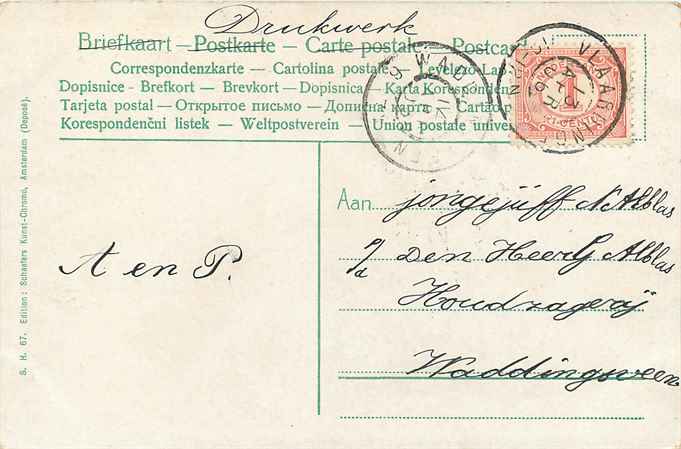 Drukwerk
Briefkaart — Postkarte — Carte postale — Postcard
Correspondenzkarte — Cartolina postale
Dopisnice - Brefkort — Brevkort — Dopisnica — Karta Korespondencyjna
Tarjeta postal — Открытое письмо — Дописна карта — Cartão postal
Korespondenčni listek — Weltpostverein — Union postale universelle
VLAARDINGEN
1 CENT
S. H. 67. Edition: Schaefers Kunst-Chromo, Amsterdam (Deposé).
A en P.
Aan jongejuff N Alblas
p/a Den Heer G Alblas
Houdzagerij
Waddingsveen